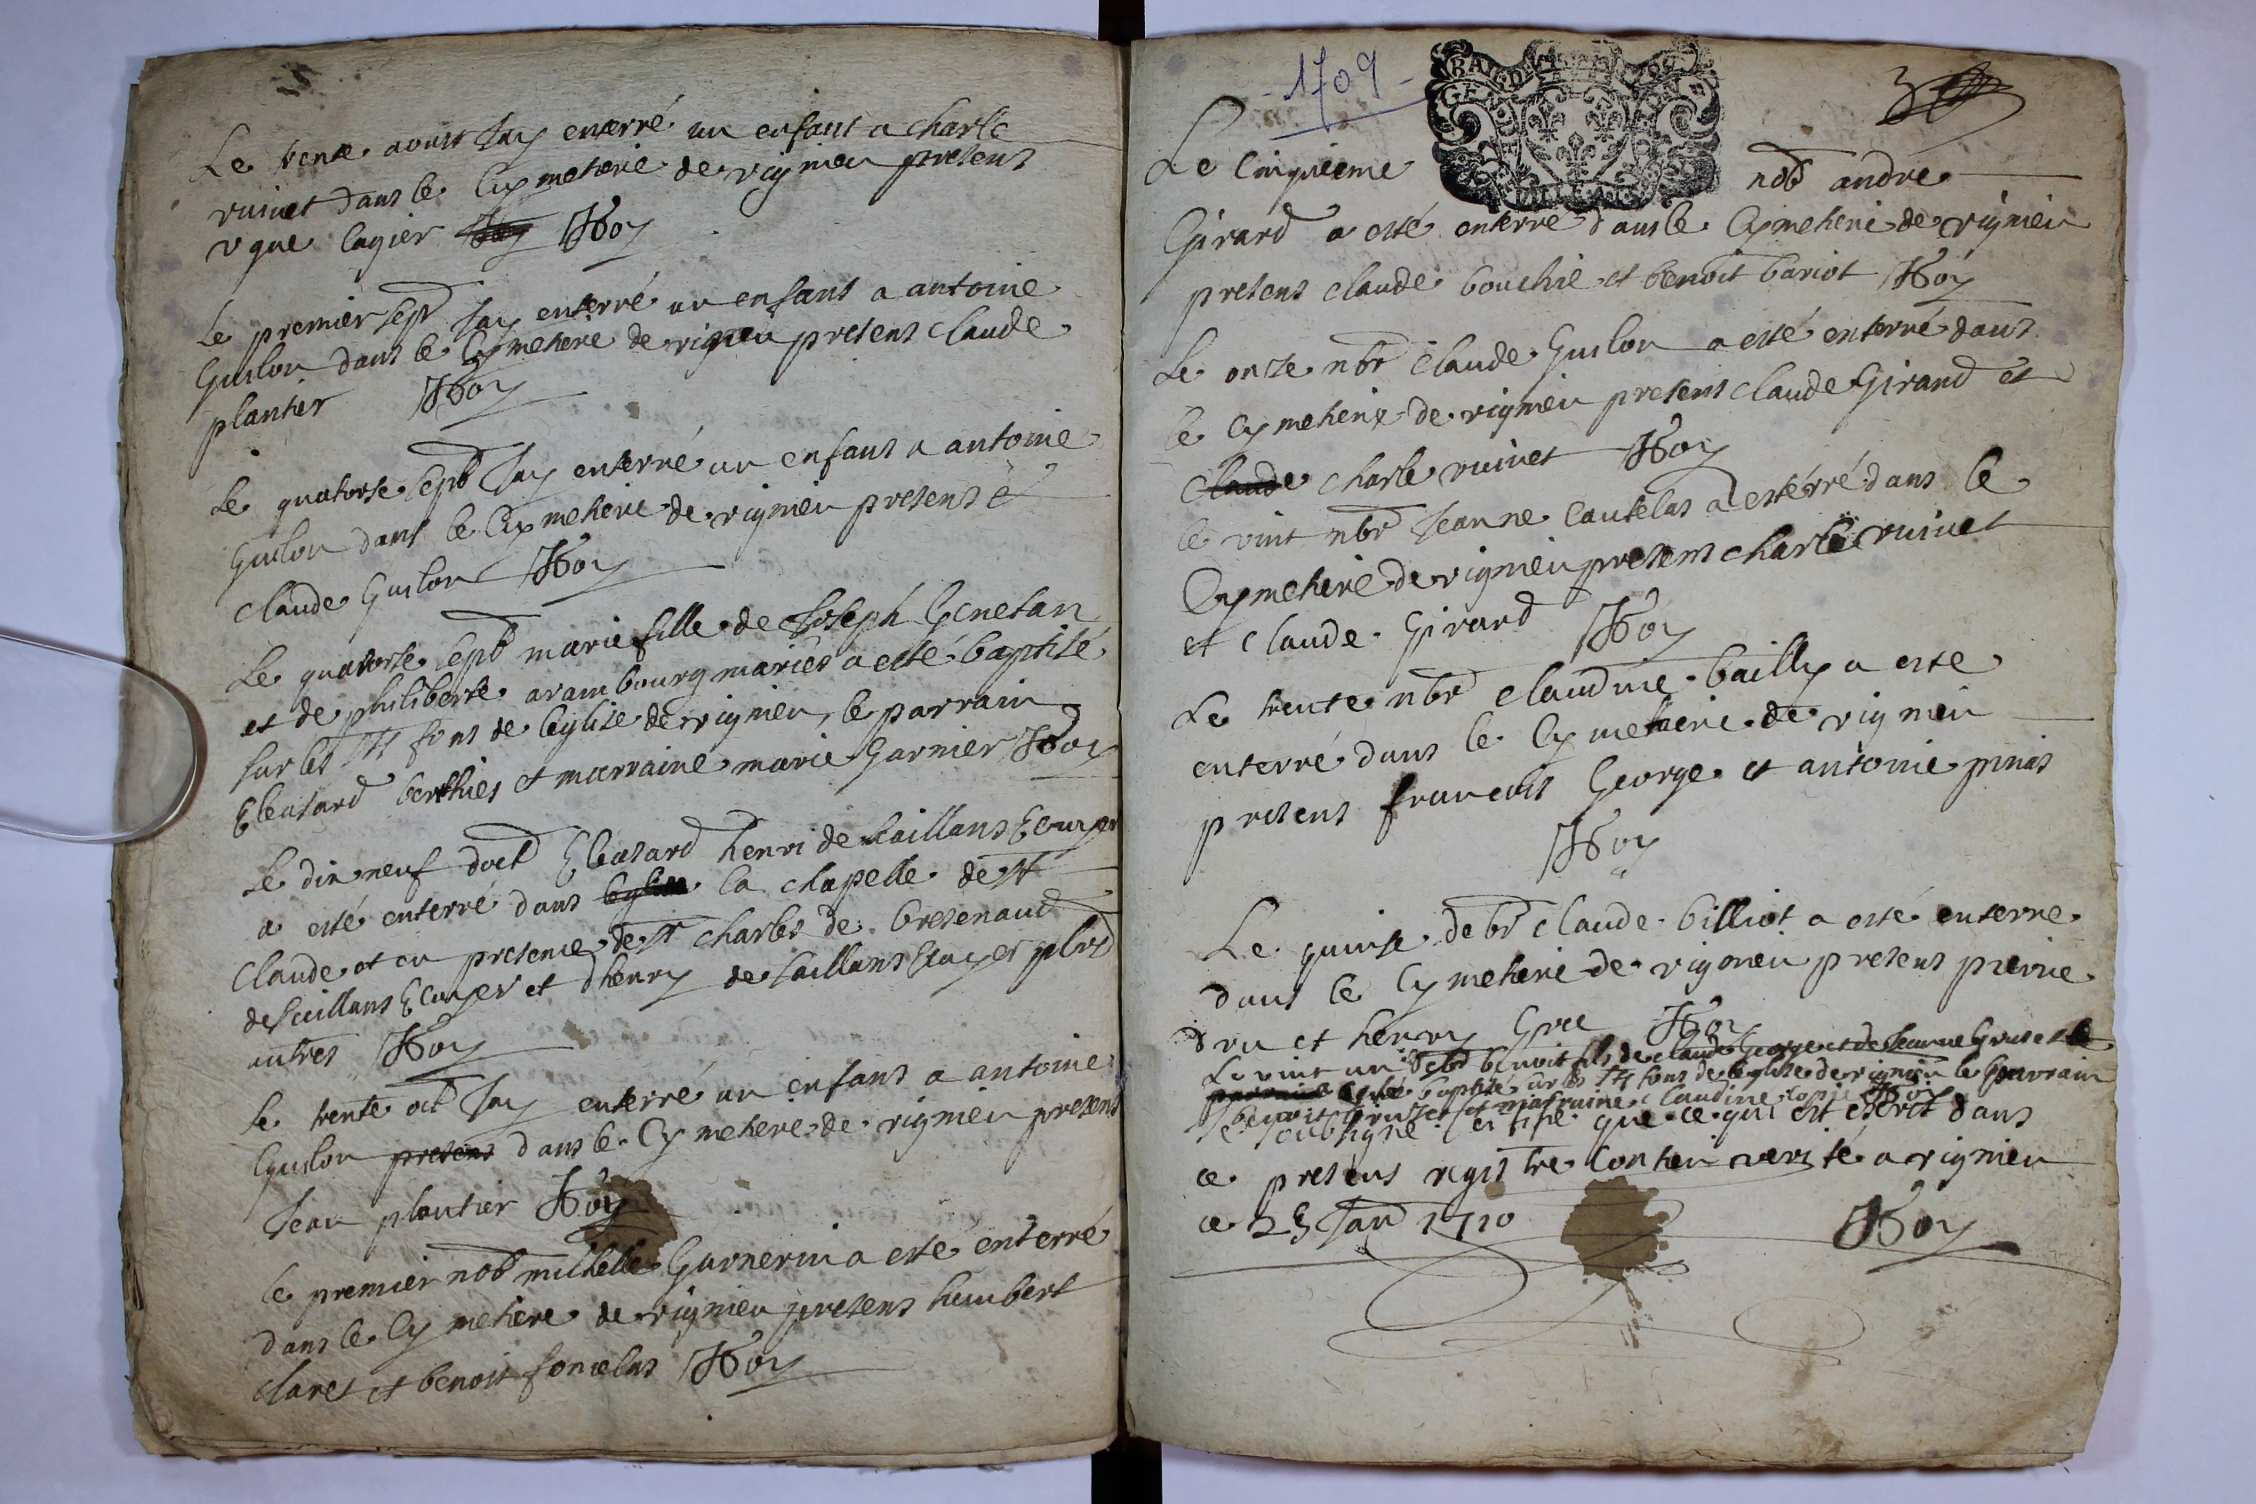 Le trente aoust Jay enterré un enfant a charle
ruinet dans le Cymetiere de rignieu presens
vgue lagier Joy JRoy
Le premier sepr Jay enterré un enfans a antoine
Guilon dans le Cymetiere de rignieu presens claude
plantier JRoy
Le quatorse sepb Jay enterré un enfans a antoine
Guilon dans le Cymetiere de rignieu presens et
claude Guilon JRoy
Le quatorse sepb marie fille de Joseph Genetan
et de philiberte arambourg mariés a esté baptisé
sur les fons de leglise de rignieu, le parrain
Eleasard berthies et marraine marie Garnier JRoy
Le dix neuf doct Eleasard henri de saillans Ecuyer
a esté enterré dans leglise la chapelle de st
claude et en presence de sr charles de bresenaud
de saillans Ecuyer et dhenry de saillans Ecuyer
autres JRoy
Le trente oct Jay enterré un enfans a antoine
Guilon presens dans le Cymetiere de rignieu presens
Jean plantier JRoy
Le premier nob michelle Garnerin a esté enterré
dans le Cymetiere de rignieu presens humbert
claret et benoit fonielas JRoy
-1709-
3
Le Cinquieme nob andre
Girard a esté enterré dans le Cymetiere de rignieu
presens claude bouchie et benoit bariot JRoy
Le onze nbr claude Guilon a esté enterré dans
le Cymetiere de rignieu presens claude Girard et
claude charle ruinet JRoy
le vint nbr Jeanne Cautelas a esterré dans le
Cymetiere de rignieu presens charle ruinet
et claude Girard JRoy
Le trente nbr claudine bailly a esté
enterré dans le Cymetiere de rignieu
presens francois George et antoine pinas
JRoy
Le quinse debr claude billiot a esté enterré
dans le Cymetiere de rignieu presens pierre
dru et henry Gree JRoy
Le vint un debr benoit fils de claude George et de Jeanne Gruset
a esté baptisé sur les fons de leglise de rignieu le parrain
benoit Gruset et marraine Claudine JRoy
Je soubsigné certifie que ce qui est escrit dans
ce presens registre Contien verité a rignieu
ce 25 Janr 1710 JRoy